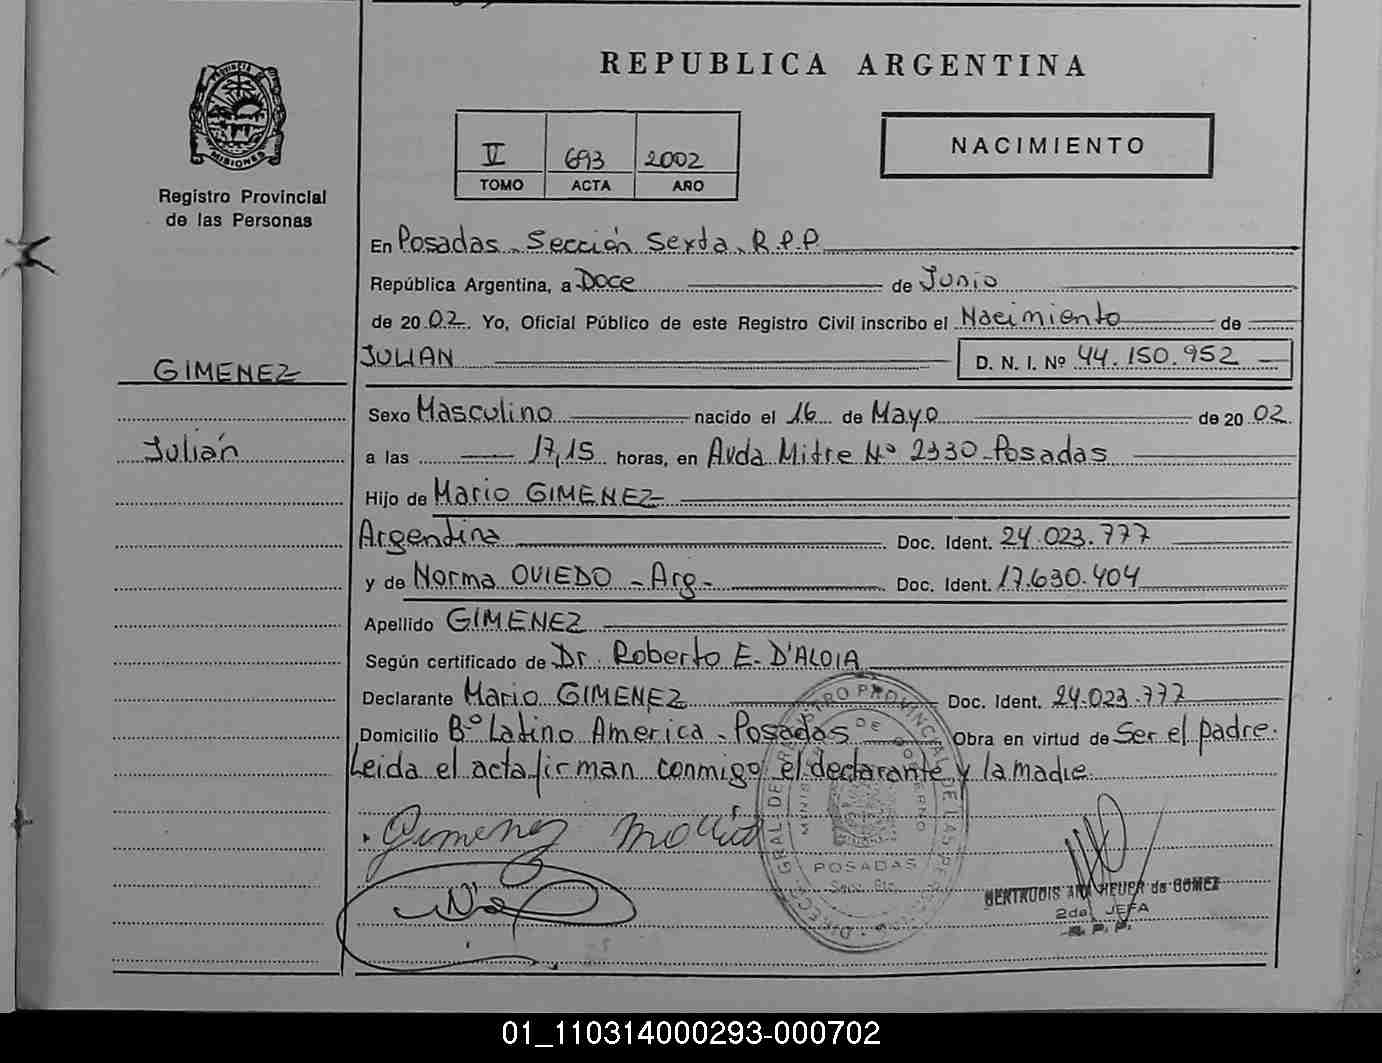 REPUBLICA ARGENTINA
PROVINCIA DE MISIONES
Registro Provincial
de las Personas
V 693 2002
TOMO ACTA AÑO
NACIMIENTO
En Posadas - Sección Sexta - R.P.P.
República Argentina, a Doce de Junio
de 2002. Yo, Oficial Público de este Registro Civil inscribo el Nacimiento de
GIMENEZ
Julián
JULIAN D. N. I. Nº 44.150.952
Sexo Masculino nacido el 16 de Mayo de 2002
a las 17,15 horas, en Avda Mitre Nº 2330 - Posadas
Hijo de Mario GIMENEZ
Argentina Doc. Ident. 24.023.777
y de Norma OVIEDO - Arg - Doc. Ident. 17.630.404
Apellido GIMENEZ
Según certificado de Dr. Roberto E. D'ALOIA
Declarante Mario GIMENEZ Doc. Ident. 24.023.777
Domicilio Bº Latino America - Posadas Obra en virtud de Ser el padre.
Leida el acta firman conmigo el declarante y la madre
Gimenez Mario
POSADAS
GERTRUDIS ANA HEUER de GOMEZ
2da. JEFA
R. P. P.
01_110314000293-000702